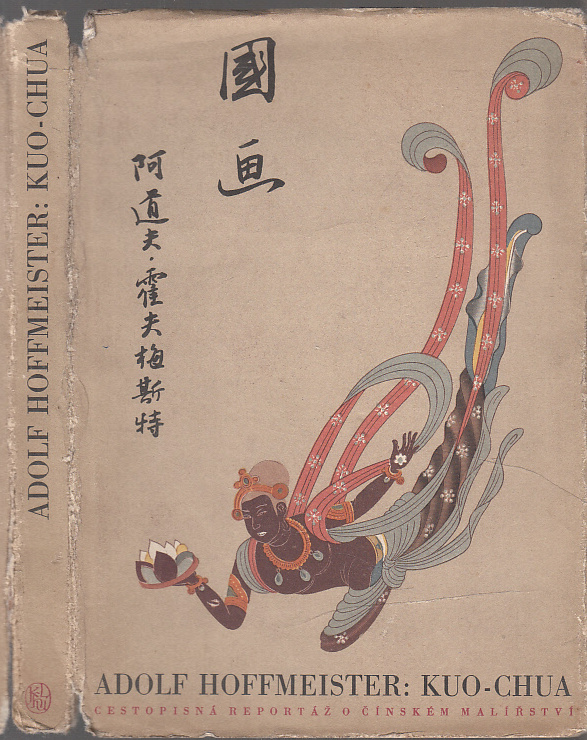 ADOLF HOFFMEISTER: KUO-CHUA
國画
阿道夫·霍夫梅斯特
ADOLF HOFFMEISTER: KUO-CHUA
CESTOPISNÁ REPORTÁŽ O ČÍNSKÉM MALÍŘSTVÍ